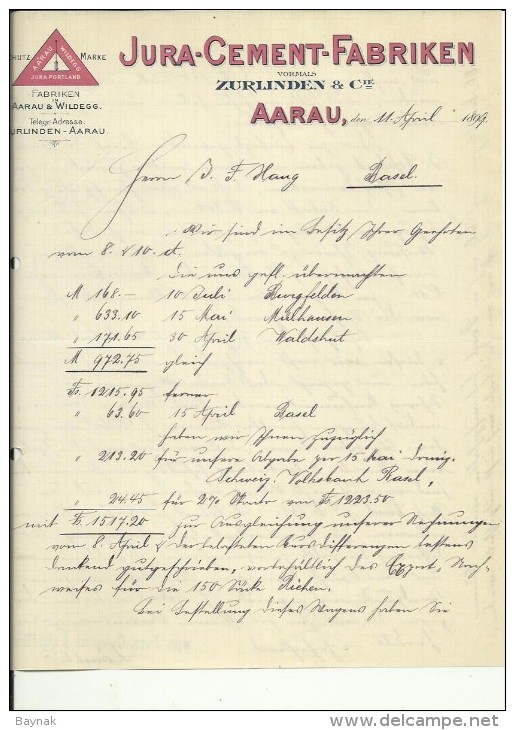 SCHUTZ MARKE
AARAU WILDEGG
JURA PORTLAND
FABRIKEN
IN
AARAU & WILDEGG.
Telegr. Adresse:
ZURLINDEN - AARAU.
JURA-CEMENT-FABRIKEN
VORMALS
ZURLINDEN & CIE
AARAU, den 11. April 1899.
Herrn J. F. Haug Basel.
Wir sind im Besitz Ihrer Geehrten
vom 8. & 10. ct.
Die uns gefl. übermachten
M 168.- 10 Juli Burgfelden
" 633.10 15 Mai Mülhausen
" 171.65 30 April Waldshut
M 972.75 gleich
Fr. 1215.95 ferner
" 63.60 15 April Basel
haben wir Ihnen zuzüglich
" 213.20 für unsere Abgabe per 15 Mai
Schweiz. Volksbank Basel,
" 24.45 für 2% Skonto von Fr. 1223.50
mit Fr. 1517.20 zur Ausgleichung unserer Rechnungen
vom 8. April & der belasteten Kursdifferenzen bestens
dankend gutgeschrieben, vorbehältlich des Export-Nach-
weises für die 150 Säcke Riehen.
Bei Bestellung dieses Wagens haben Sie
Baynak
www.delcampe.net